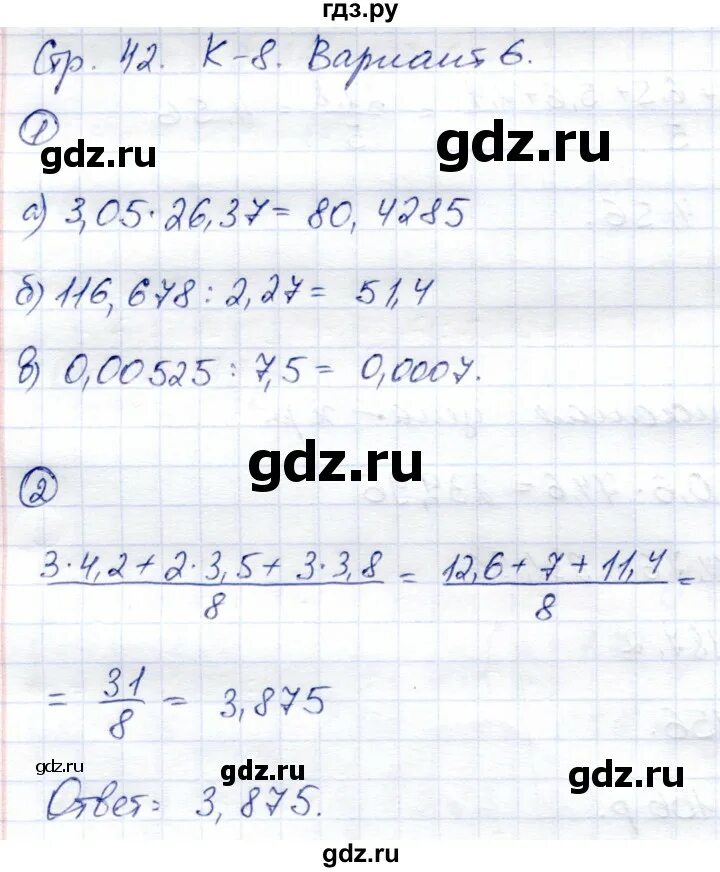 гдз.ру
Стр. 42. К-8. Вариант 6.
1
gdz.ru
gdz.ru
а) 3,05·26,37= 80,4285
б) 116,678 : 2,27= 51,4
в) 0,00525 : 7,5= 0,0007.
gdz.ru
2
3·4,2+2·3,5+3·3,8/8 = 12,6+7+11,4/8 =
= 31/8 = 3,875
gdz.ru
gdz.ru
gdz.ru
Ответ: 3,875.
gdz.ru